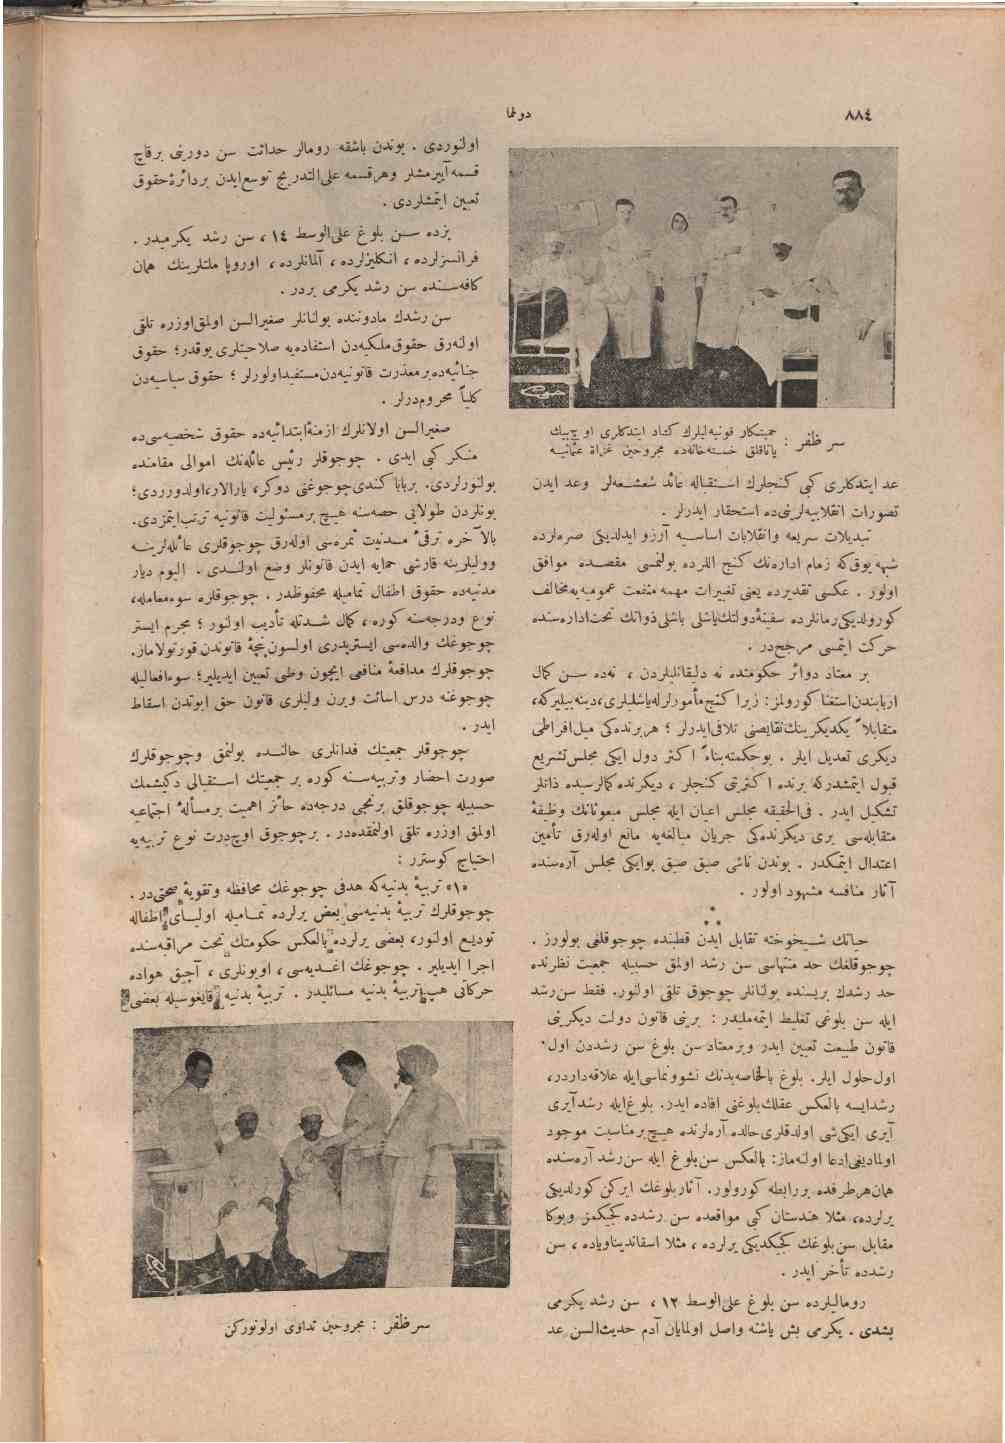 ٨٨٤
دوننما
سر ظفر : حميتكار قونيه ليلرك كشاد ايتدكلرى اوچ بيك
ياتاقلق خسته خانه ده مجروحين غزاة عثمانيه
عد ايتدكلرى كبى كنجلرك استقباله عائد شعشعه لر وعد ايدن
تصورات انقلابيه لرينى ده استحقار ايدرلر .
تبديلات سريعه وانقلابات اساسيه آرزو ايدلديكى صره لرده
شبهه يوق كه زمام اداره نك كنج اللرده بولنمسى مقصده موافق
اولور . عكسى تقديرده يعنى تغييرات مهمه منفعت عموميه يه مخالف
كورولديكى زمانلرده سفينهٔ دولتك ياشلى باشلى ذواتك تحت اداره سنده
حركت ايتمسى مرجح در .
بر معتاد دوائر حكومتده نه دليقانليلردن ، نه ده سن كمال
اربابندن استغنا كورولمز : زيرا كنج مأمورلرله ياشليلرى، دينه بيليركه،
متقابلاً يكديكرينك نقايصنى تلافى ايدرلر ؛ هربرنده كى ميل افراطى
ديكرى تعديل ايلر . بوحكمته بناءً اكثر دول ايكى مجلس تشريع
قبول ايتمشدركه برنده اكثريتى كنجلر ، ديكرنده كمالرسيده ذاتلر
تشكيل ايدر . فى الحقيقه مجلس اعيان ايله مجلس مبعوثانك وظيفهٔ
متقابله سى برى ديكرنده كى جريان مبالغه يه مانع اوله رق تأمين
اعتدال ايتمكدر . بوندن ناشى صيق صيق بوايكى مجلس آره سنده
آثار منافسه مشهود اولور .
* * *
حياتك شيخوخته تقابل ايدن قطبنده چوجوقلغى بولورز .
چوجوقلغك حد منتهاسى سن رشد اولمق حسبيله جمعيت نظرنده
حد رشدك بريسنده بولنانلر چوجوق تلقى اولنور. فقط سن رشد
ايله سن بلوغى تغليط ايتمه مليدر : برينى قانون دولت ديكرينى
قانون طبيعت تعيين ايدر وبرمعتاد سن بلوغ سن رشددن اول
اول حلول ايلر. بلوغ بالخاصه بدنك نشوونماسى ايله علاقه داردر،
رشدايسه بالعكس عقلك بلوغنى افاده ايدر. بلوغ ايله رشد آيرى
آيرى ايكى شى اولدقلرى حالده آره لرنده هيچ برمناسبت موجود
اولماديغى ادعا اولنه ماز: بالعكس سن بلوغ ايله سن رشد آره سنده
همان هرطرفده بررابطه كورولور. آثار بلوغك ايركن كورلديكى
يرلرده، مثلا هندستان كبى مواقعده سن رشدده كجيكمز وبوكا
مقابل سن بلوغك كجيكديكى يرلرده ، مثلا اسقانديناوياده ، سن
رشدده تأخر ايدر .
روماليلرده سن بلوغ على الوسط ١٢ ، سن رشد يكرمى
بشدى . يكرمى بش ياشنه واصل اولمايان آدم حديث السن عد
اولنوردى . بوندن باشقه رومالر حداثت سن دورينى برقاچ
قسمه آييرمشلر وهرقسمه على التدريج توسع ايدن بردائرهٔ حقوق
تعيين ايتمشلردى .
بزده سن بلوغ على الوسط ١٤ ، سن رشد يكرميدر .
فرانسزلرده ، انكليزلرده ، آلمانلرده ، اوروپا ملتلرينك همان
كافه سنده سن رشد يكرمى بردر .
سن رشدك مادوننده بولنانلر صغيرالسن اولمق اوزره تلقى
اولنه رق حقوق ملكيه دن استفاده يه صلاحيتلرى يوقدر؛ حقوق
جنائيه ده برمعذرت قانونيه دن مستفيد اولورلر ؛ حقوق سياسيه دن
كلياً محرومدرلر .
صغيرالسن اولانلرك ازمنهٔ ابتدائيه ده حقوق شخصيه سى ده
منكر كبى ايدى . چوجوقلر رئيس عائله نك اموالى مقامنده
بولنورلردى. بربابا كندى چوجوغنى دوكر، يارالار، اولدورردى؛
بونلردن طولايى حصه سنه هيچ برمسئوليت قانونيه ترتب ايتمزدى.
بالآخره ترقىٔ مدنيت ثمره سى اوله رق چوجوقلرى عائله لرينه
ووليلرينه قارشى حمايه ايدن قانونلر وضع اولندى . اليوم ديار
مدنيه ده حقوق اطفال تماميله محفوظدر . چوجوقلره سوء معامله،
نوع ودرجه سنه كوره ، كمال شدتله تأديب اولنور ؛ مجرم ايستر
چوجوغك والده سى ايستر پدرى اولسون پنجهٔ قانوندن قورتولاماز.
چوجوقلرك مدافعهٔ منافعى ايچون وصى تعيين ايديلير؛ سوء افعاليله
چوجوغنه درس اسائت ويرن وليلرى قانون حق ابوتدن اسقاط
ايدر .
چوجوقلر جمعيتك فدانلرى حالنده بولنمق وچوجوقلرك
صورت احضار وتربيه سنه كوره بر جمعيتك استقبالى دكيشمك
حسبيله چوجوقلق برنجى درجه ده حائز اهميت برمسألهٔ اجتماعيه
اولمق اوزره تلقى اولنمقده در . برچوجوق اوچ درت نوع تربيه يه
احتياج كوسترر :
«١» تربيهٔ بدنيه كه هدفى چوجوغك محافظه وتقويهٔ صحتى در .
چوجوقلرك تربيهٔ بدنيه سى بعض يرلرده تماميله اولياى اطفاله
توديع اولنور، بعضى يرلرده بالعكس حكومتك تحت مراقبه سنده
اجرا ايديلير . چوجوغك اغديه سى ، اويونلرى ، آچيق هواده
حركاتى هپ تربيهٔ بدنيه مسائليدر . تربيهٔ بدنيه قايغوسيله بعضى
سر ظفر : مجروحين تداوى اولونوركن